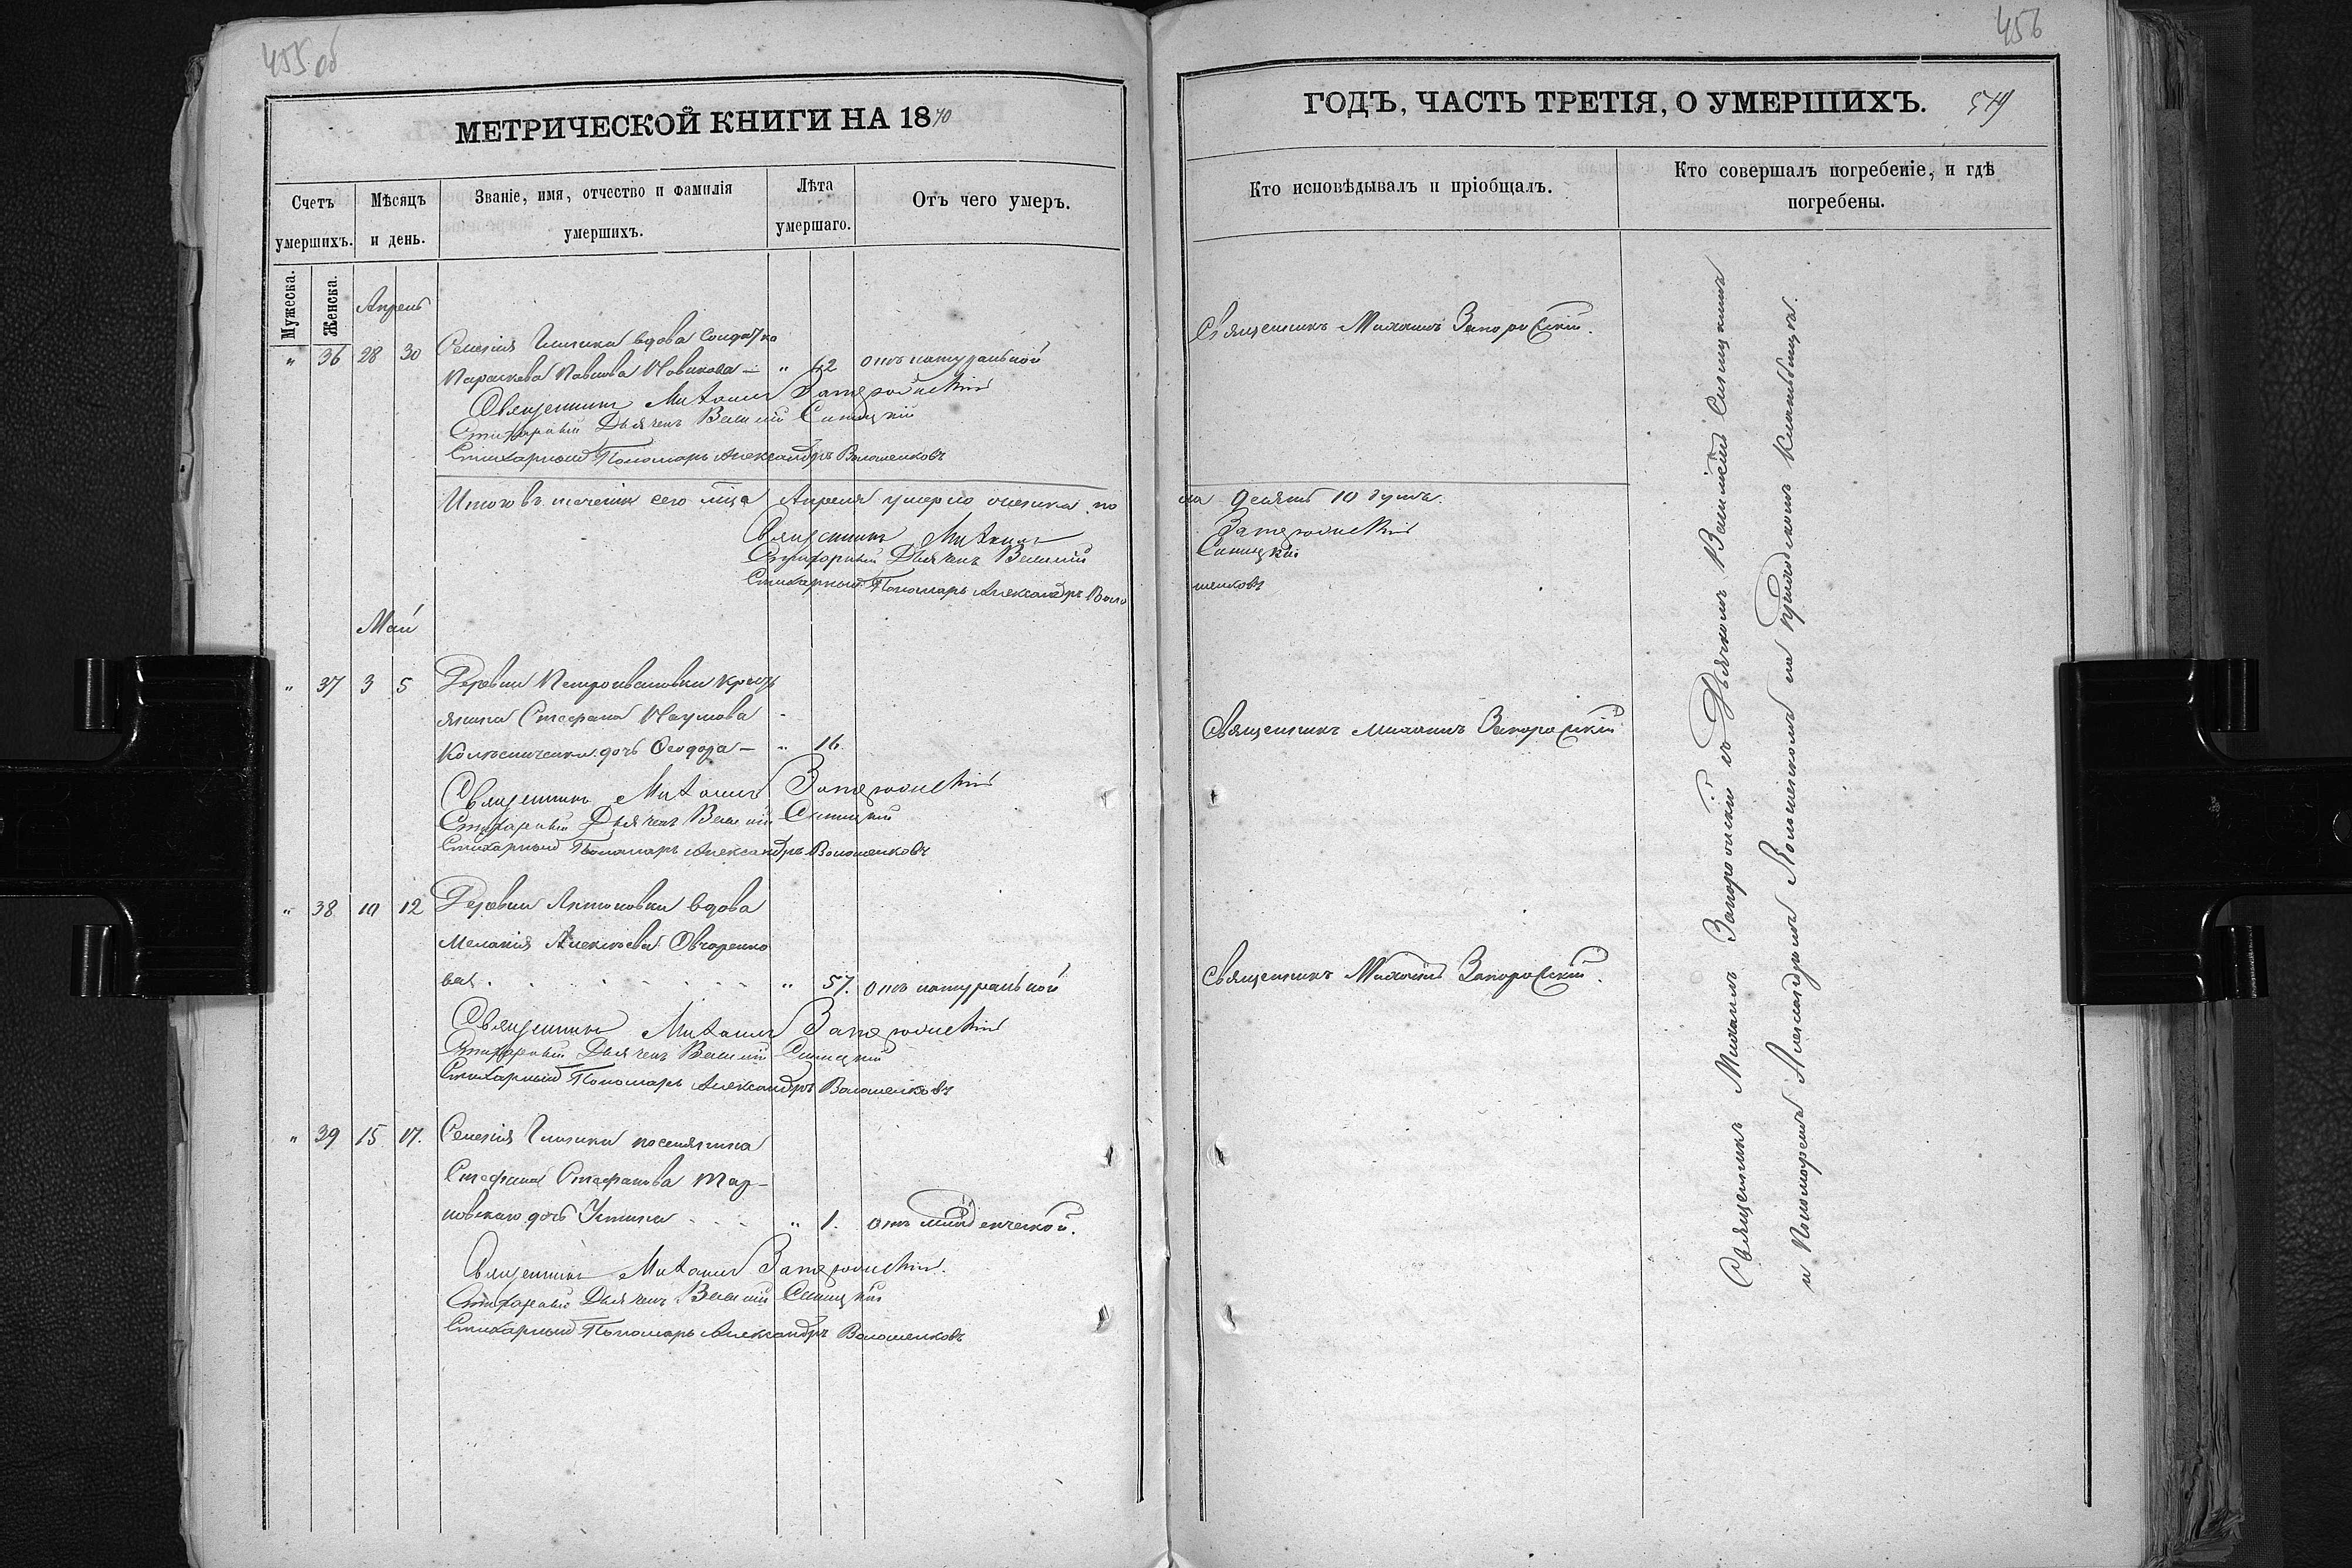 455 об
МЕТРИЧЕСКОЙ КНИГИ НА 1870
Счетъ умершихъ.
Мѣсяцъ и день.
Званіе, имя, отчество и фамилія умершихъ.
Лѣта умершаго.
Отъ чего умеръ.
Мужеска.
Женска.
Апрель
" 36 28 30 Селенія вдова солдатка
Параскева Павлова Новикова — " 42 отъ натуральной
Священникъ Михаилъ Запорожскій
Стихарный Дьячекъ Василій Синицкій
Стихарный Пономарь Александръ Волошенковъ
Итого въ теченіи сего мца Апреля умерло человѣка по
Священникъ Михаилъ
Стихарный Дьячекъ Василій
Стихарный Пономарь Александръ Воло
Май
" 37 3 5 Деревни Петроивановки кресть
янина Стефана Наумова
дочь Феодора — " 16.
Священникъ Михаилъ Запорожскій
Стихарный Дьячекъ Василій Синицкій
Стихарный Пономарь Александръ Волошенковъ
" 38 10 12 Деревни Антоновки вдова
Меланія Алексѣева Овчаренко
вая. " 57. отъ натуральной
Священникъ Михаилъ Запорожскій
Стихарный Дьячекъ Василій Синицкій
Стихарный Пономарь Александръ Волошенковъ
" 39 15 17. Селенія поселянина
Стефана Стефанова Тар-
новскаго дочь Устина " 1. отъ младенческой.
Священникъ Михаилъ Запорожскій.
Стихарный Дьячекъ Василій Синицкій
Стихарный Пономарь Александръ Волошенковъ
456
ГОДЪ, ЧАСТЬ ТРЕТІЯ, О УМЕРШИХЪ.
Кто исповѣдывалъ и пріобщалъ.
Кто совершалъ погребеніе, и гдѣ погребены.
Священникъ Михаилъ Запорожскій.
ла десять 10 душъ.
Запорожскій
Синицкій
шенковъ
Священникъ Михаилъ Запорожскій
Священникъ Михаилъ Запорожскій.
Священникъ Михаилъ Запорожскій съ Дьячкомъ Василіемъ Синицкимъ
и Пономаремъ Александромъ Волошенковымъ на приходскомъ кладбищѣ.